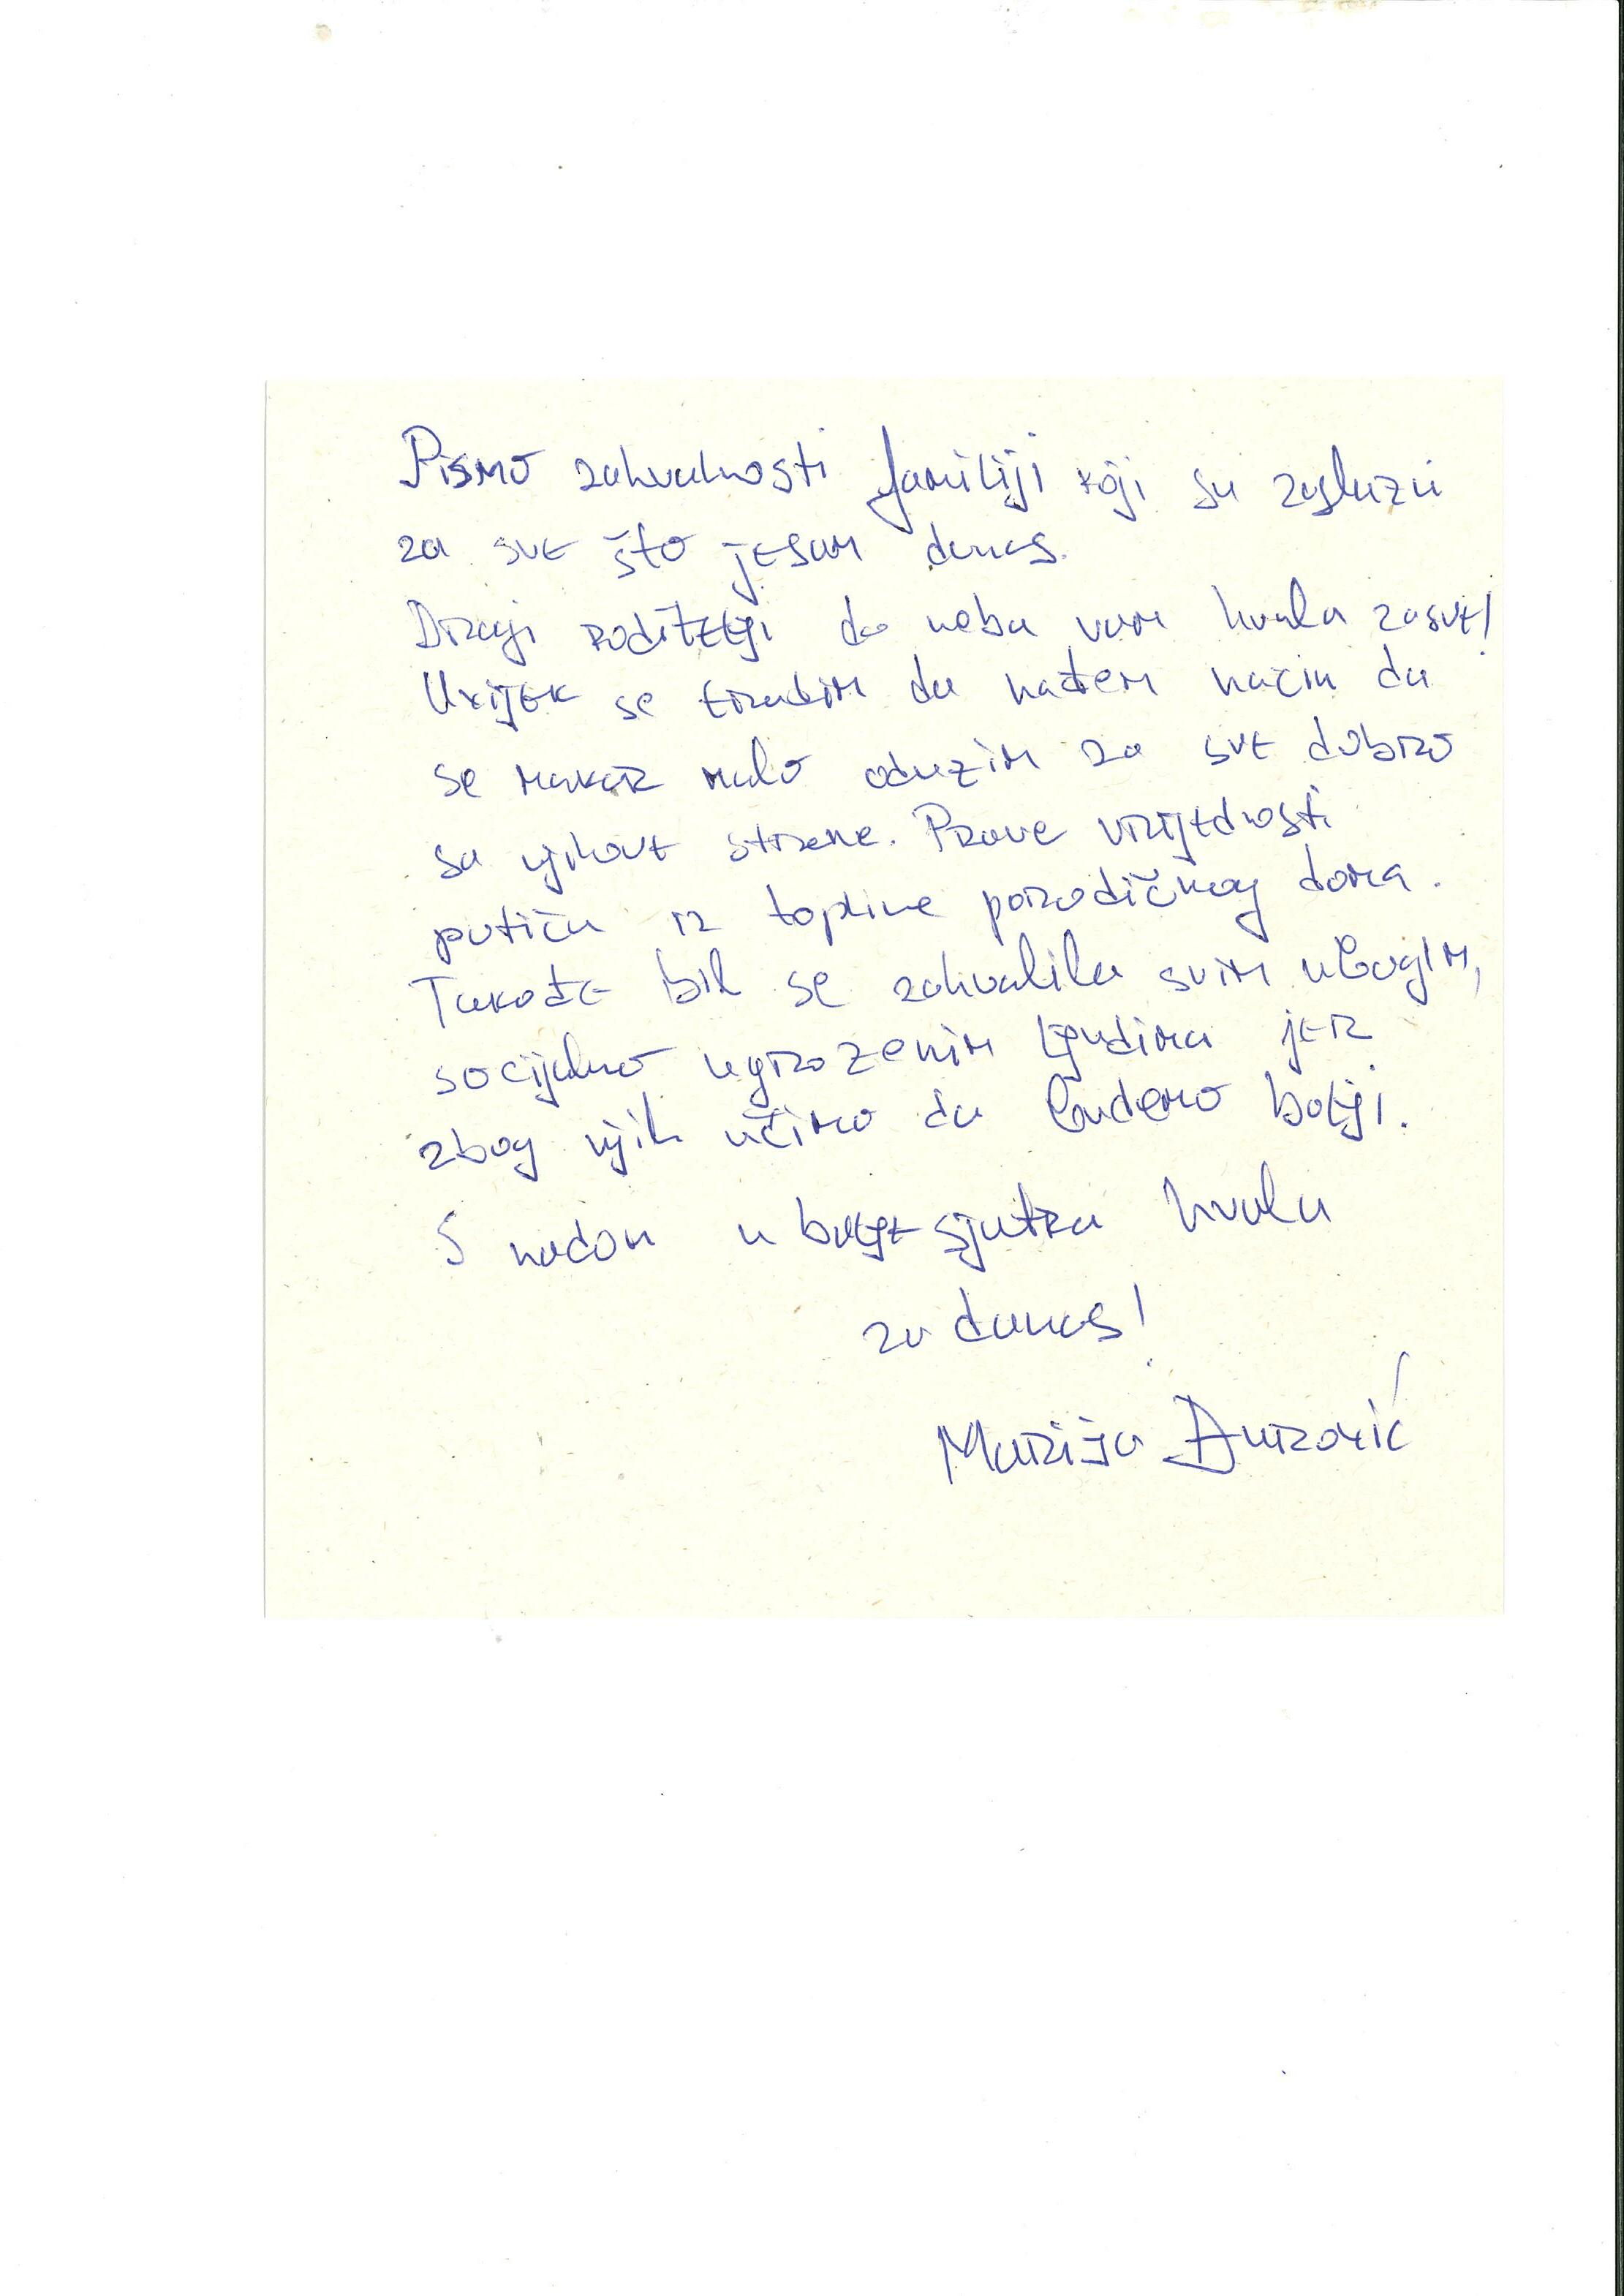 Pismo zahvalnosti familiji koji su zasluzni
za sve što jesam danas.
Dragi roditelji do neba vam hvala za sve!
Uvijek se trudim da nađem način da
se makar malo oduzim za sve dobro
sa njihove strane. Prave vrijednosti
potiču iz topline porodičnog doma.
Takođe bih se zahvalila svim ubogim,
socijalno ugrozenim ljudima jer
zbog njih učimo da budemo bolji.
S nadom u bolje sjutra hvala
za danas!
Marija Đurović